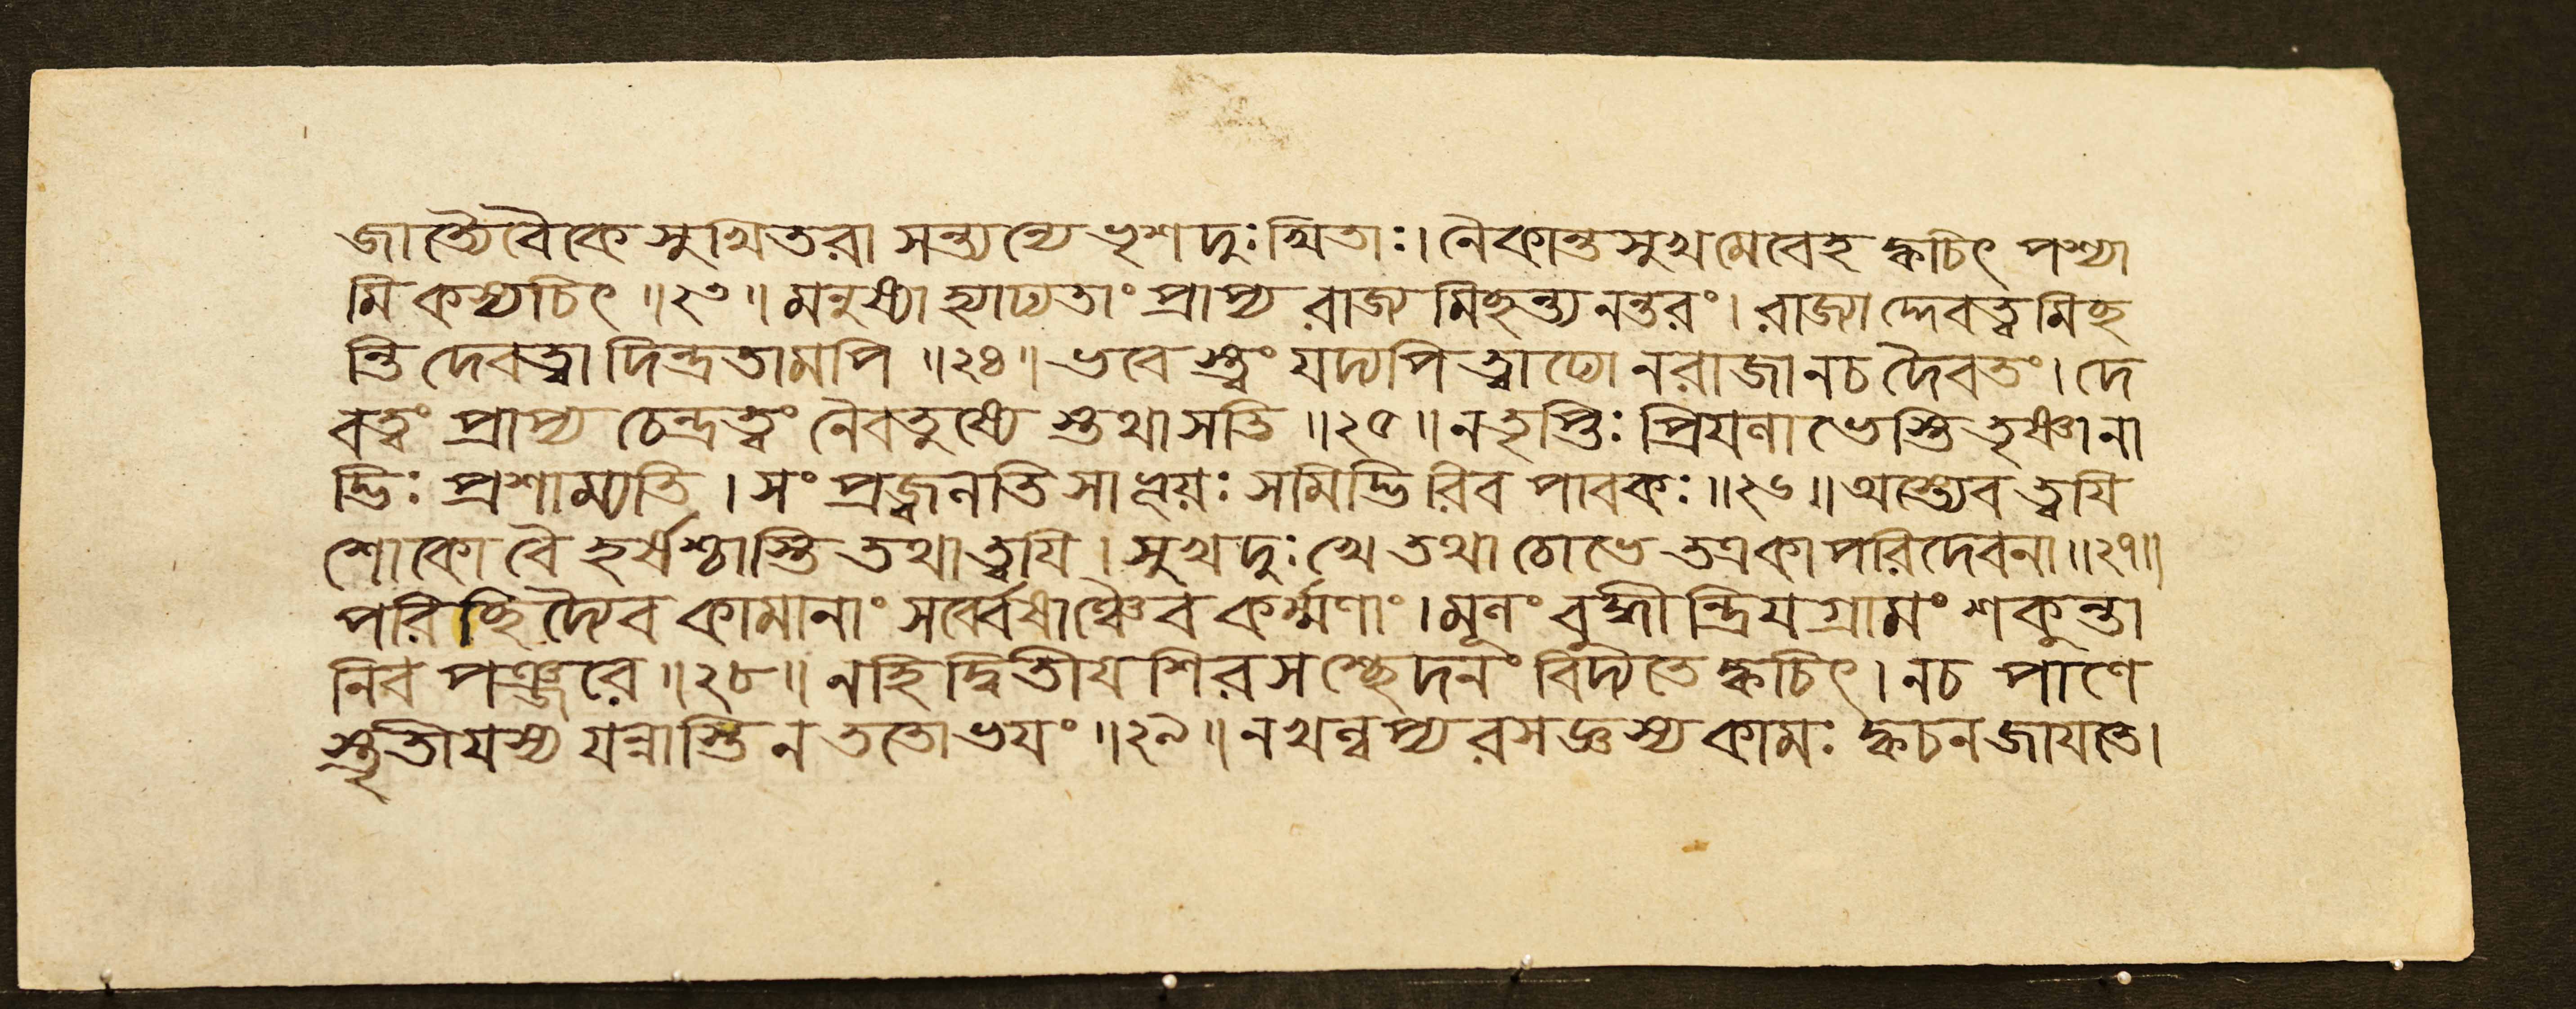 জাত্যৈবৈকে সুখিতরা সন্ত্যন্যে ভৃশদুঃখিতাঃ। নৈকান্তসুখমেবেহ ক্বচিৎ পশ্যা
মি কস্যচিৎ ॥২৩॥ মনুষ্যা হ্যাঢ্যতাং প্রাপ্য রাজ্যমিছন্ত্যনন্তরং। রাজ্যাদ্দেবত্বমিছ
ন্তি দেবত্বাদিন্দ্রতামপি ॥২৪॥ ভবেস্ত্বং যদ্যপি ত্বাঢ্যো নরাজা নচ দৈবতং। দে
বত্বং প্রাপ্য চেন্দ্রত্বং নৈবতুষ্যেস্তথা সতি ॥২৫॥ ন তৃপ্তিঃ প্রিযলাভেস্তি তৃষ্ণা না
দ্ভিঃ প্রশাম্যতি । সংপ্রজ্বলতি সা ভূয়ঃ সমিদ্ভিরিব পাবকঃ ॥২৬॥ অস্ত্যেব ত্বযি
শোকো বৈ হর্ষশ্চাস্তি তথা ত্বযি । সুখদুঃখে তথা চোভে তত্র কা পরিদেবনা ॥২৭॥
পরিচ্ছিদ্যৈব কামানাং সর্ব্বেষাঞ্চৈব কর্ম্মণাং । মূলং বুদ্ধীন্দ্রিযগ্রামং শকুন্তা
নিব পঞ্জরে ॥২৮॥ নহি দ্বিতীয শিরসশ্ছেদনং বিদ্যতে ক্বচিৎ । নচ পাণে
স্তৃতীযস্য যন্নাস্তি ন ততো ভযং ॥২৯॥ ন খল্বপ্যরসজ্ঞস্য কামঃ ক্বচন জাযতে।